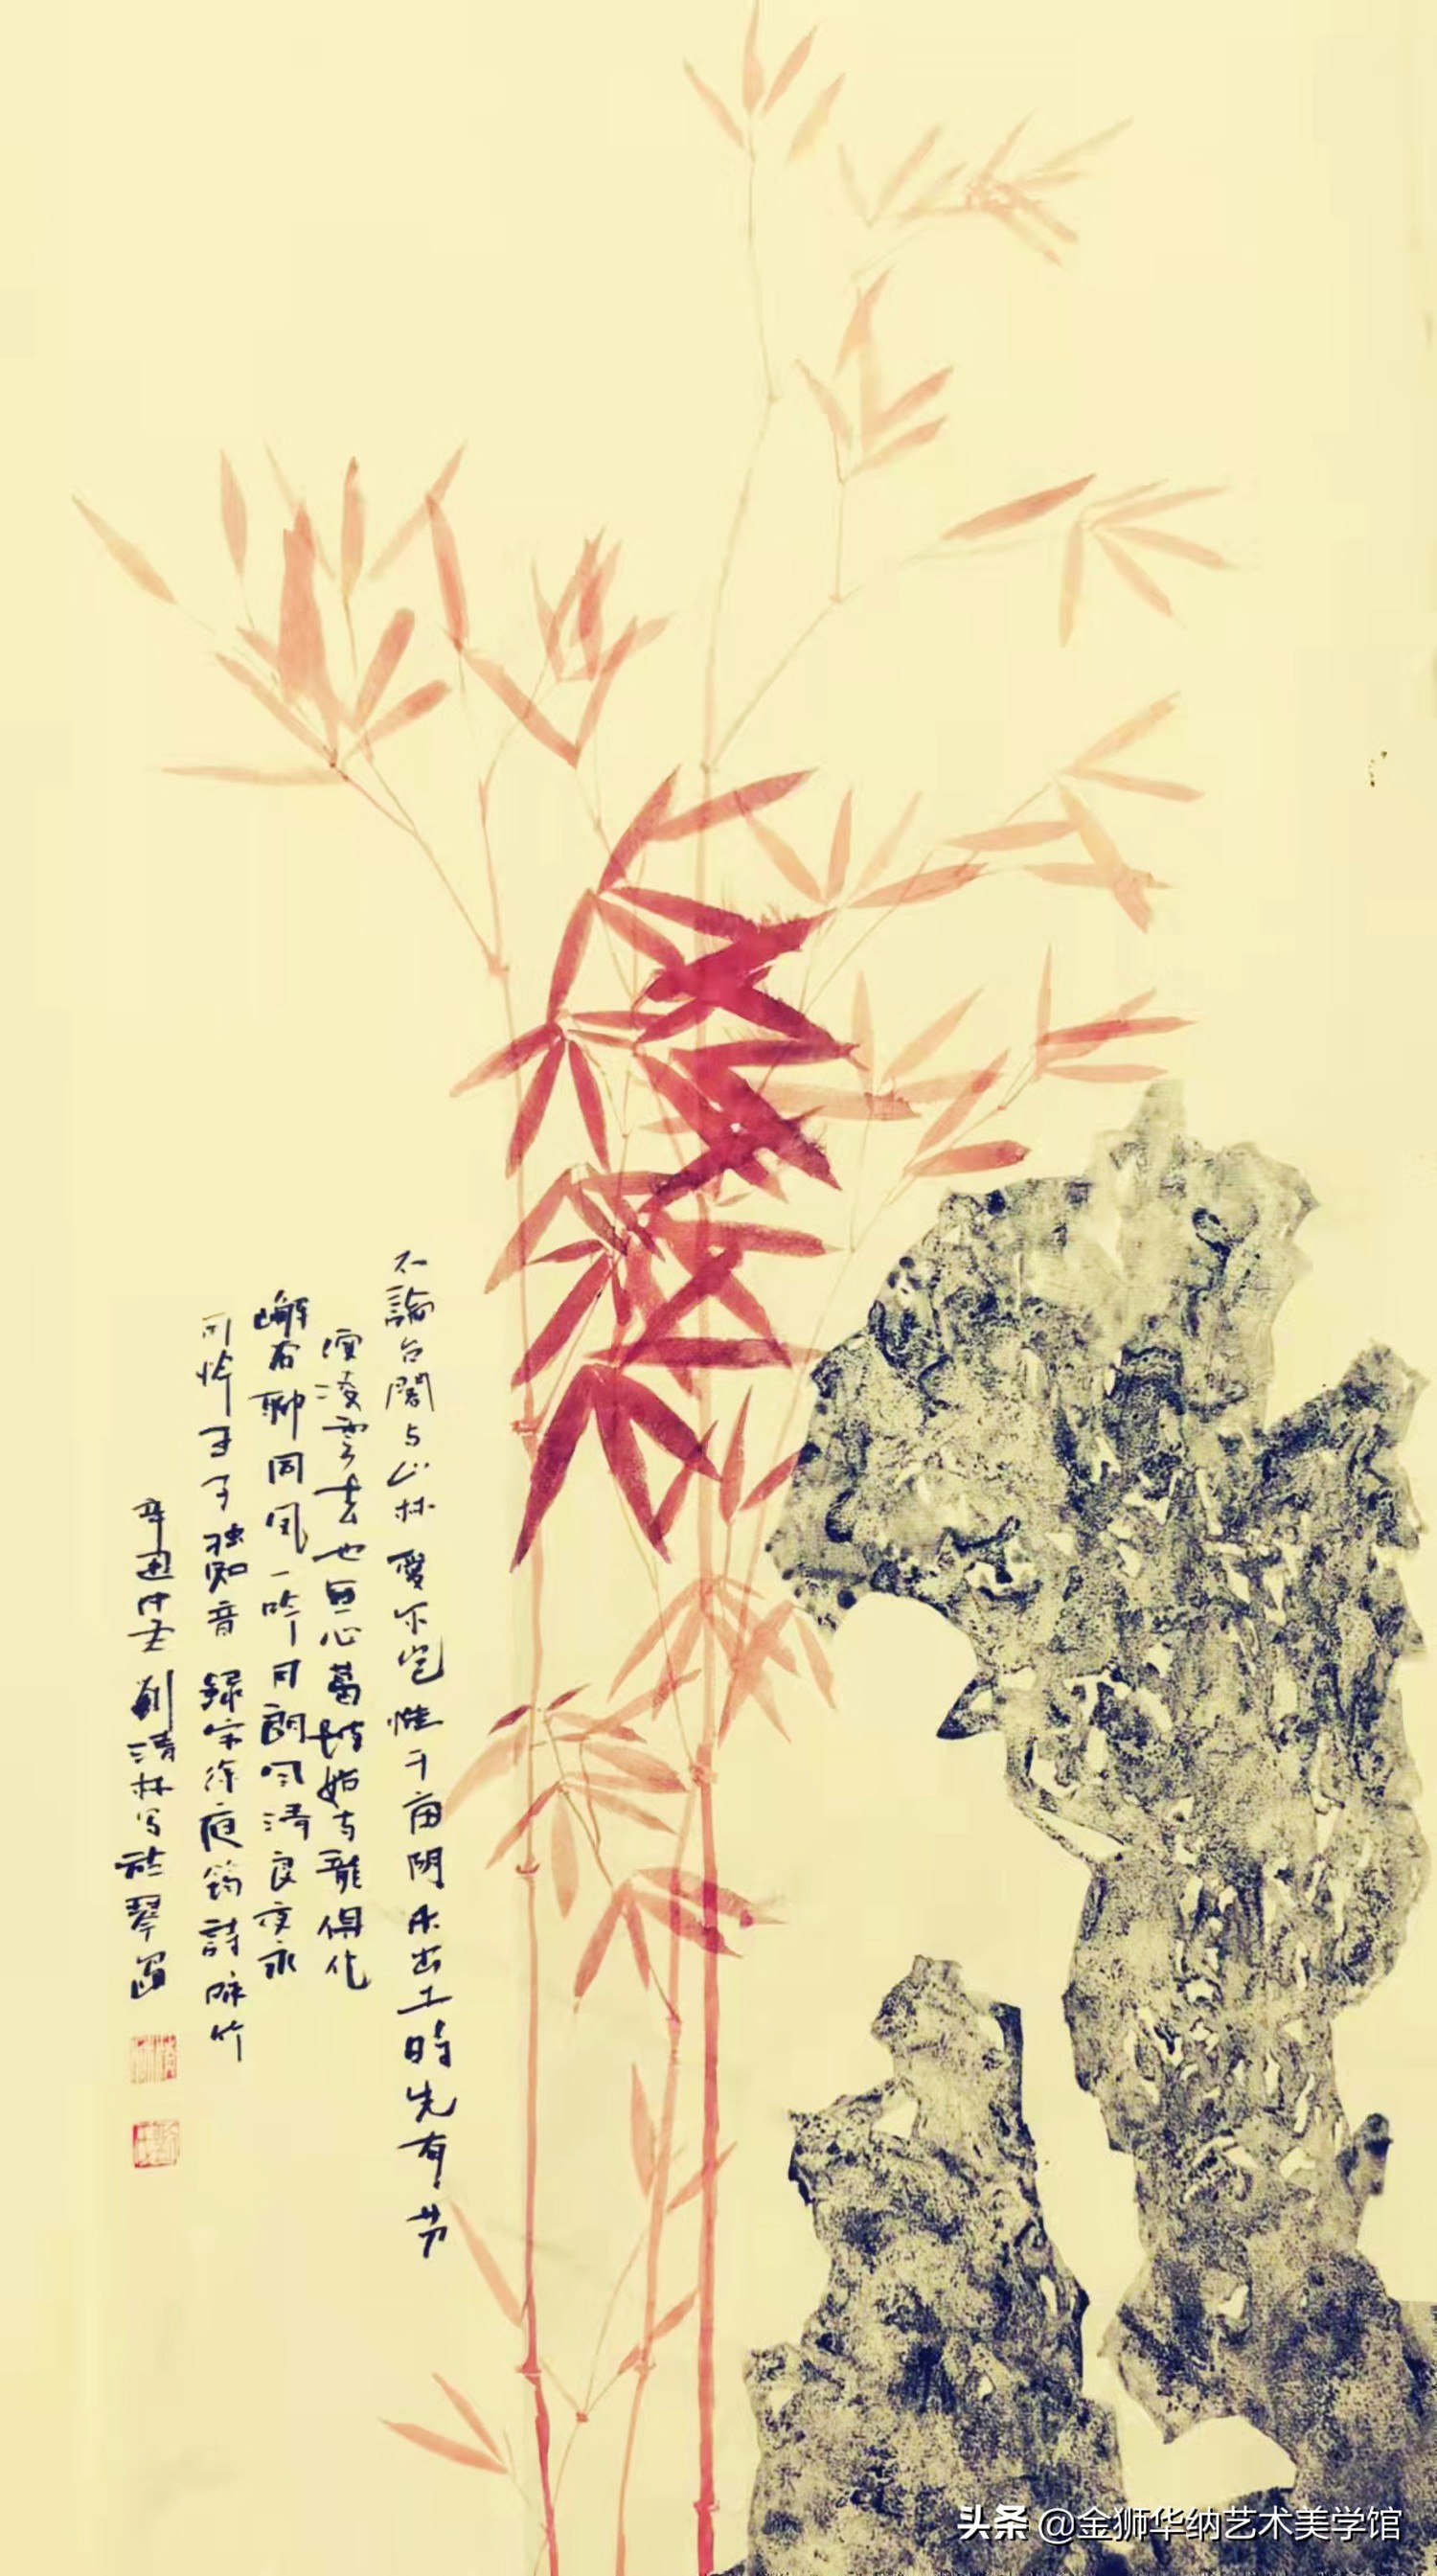 不論台閣与山林愛尔岂惟千亩阴未出土時先有节
便凌雲去也无心葛陂始与龍俱化
嶰谷聊同凤一吟月朗风清良夜永
可怜王子独知音録宋徐庭筠詩咏竹
辛丑中冬刘清林写於琴島
头条 @金狮华纳艺术美学馆